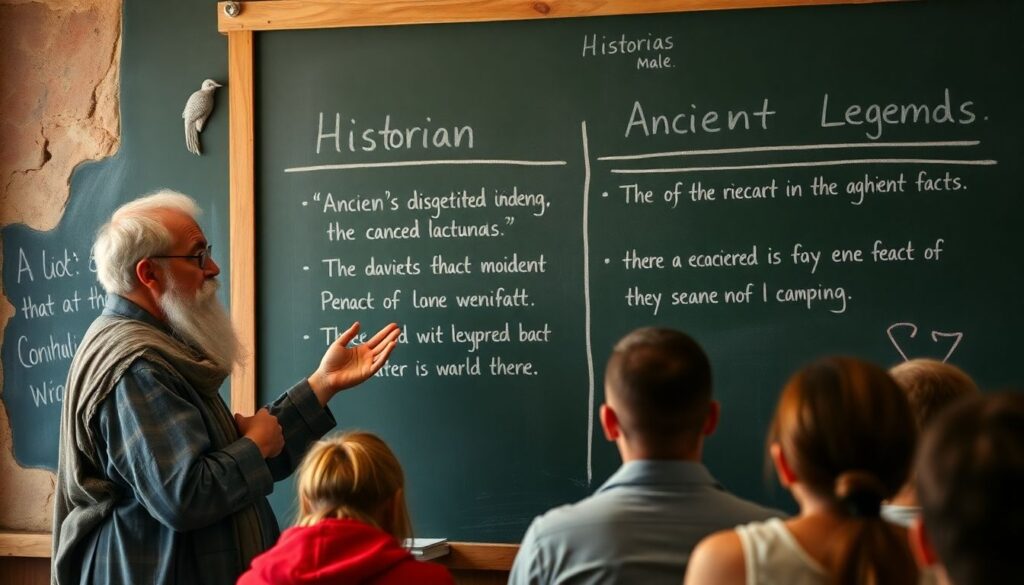 Historias
Male.
Historian
Ancient Legemds.
• "Ancien's disgetited indeng,
the canced lactunas."
• The daviets thact moident
Penact of lone wenifatt.
• wit leypred bact
is warld there.
• The of the riecart in the aghient facts.
• there a ecaciered is fay ene feact of
they seane nof I camping.
A
that at the